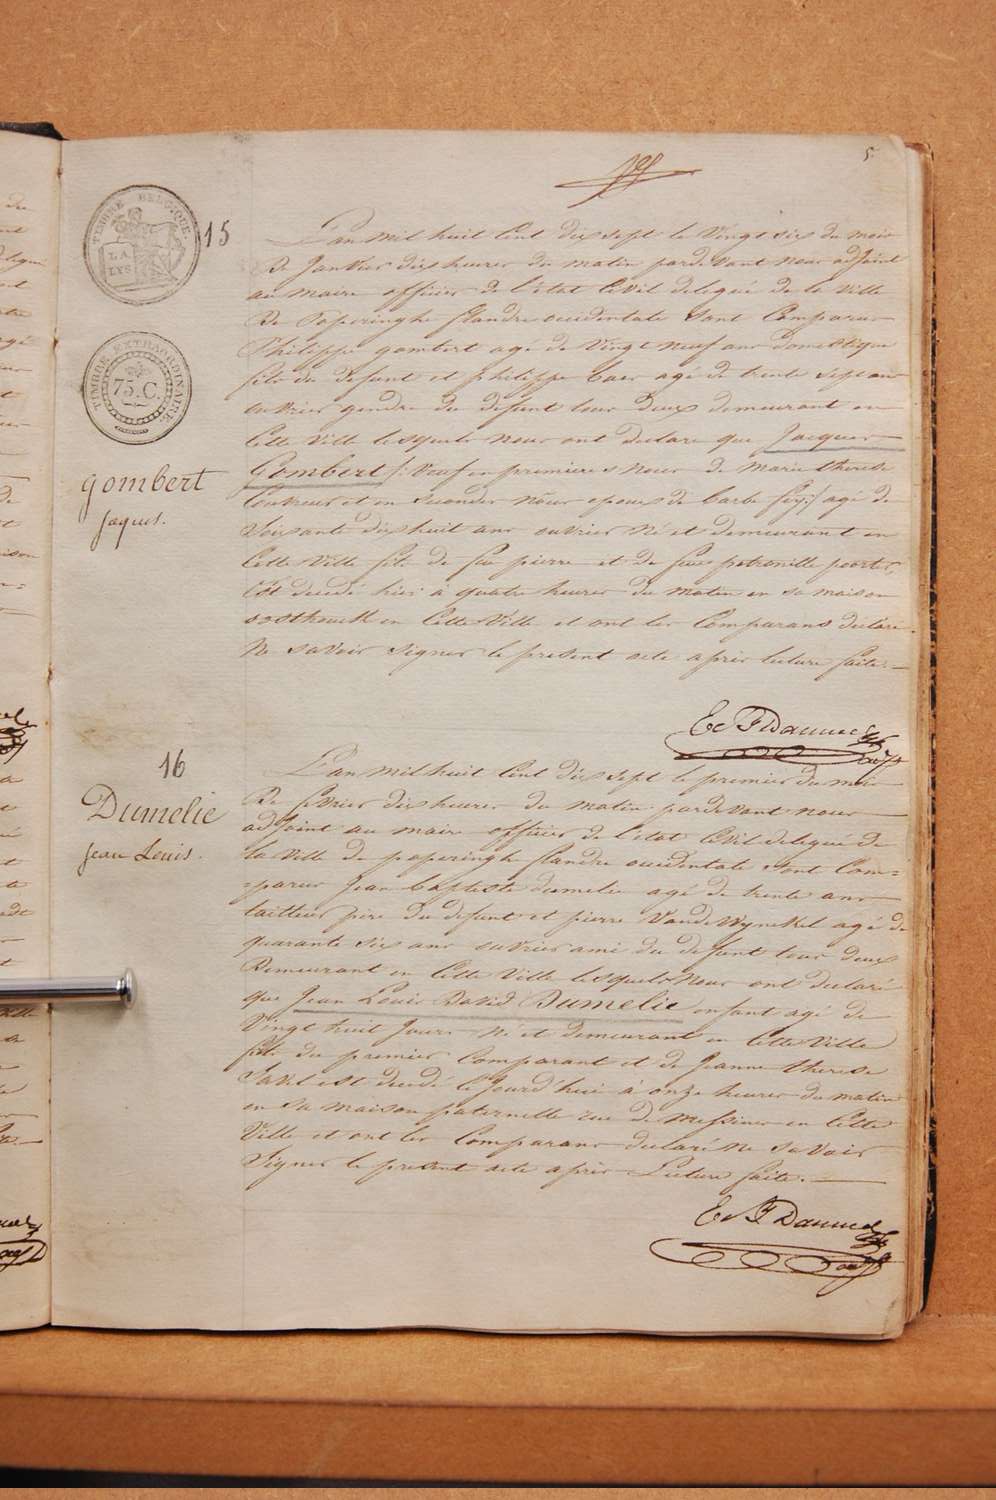 5
TIMBRE BELGIQUE
LA
LYS
15
L'an mil huit Cent dix sept le Vingt six du mois
De Janvier dix heures du matin pardevant nous adjoint
au maire officier de l'état Civil delegué de la Ville
De Poperinghe flandre occidentale sont Comparus
Philippe gombert agé de Vingt neuf ans domestique
fils du defunt et philippe baes agé de trente sept ans
ouvrier gendre du defunt tous Deux demeurant en
Cette Ville lesquels nous ont Declaré que Jacques
Gombert /: Veuf en premieres noces de marie therese
et en secondes nôces epoux de barbe :/ agé de
Soixante dix huit ans ouvrier Né et demeurant en
Cette Ville fils de feu pierre et de feue petronille
Est decedé hier à quatre heures du matin en sa maison
en Cette Ville et ont les Comparans declaré
Ne savoir signer le present acte après lecture faite.
TIMBRE EXTRAORDINAIRE
75.C.
gombert
Jaques.
16
Dumelie
Jean Louis.
L'an mil huit Cent dix sept le premier du mois
De fevrier dix heures du matin pardevant nous
adjoint au maire officier de l'état Civil delegué de
la Ville de poperinghe flandre occidentale sont Com=
=parus Jean baptiste dumelie agé de trente ans
tailleur père du defunt et pierre VandeWynckel agé de
quarante six ans ouvrier ami du defunt tous deux
Demeurant en Cette Ville lesquels Nous ont declaré
que Jean Louis David Dumelie enfant agé de
Vingt huit Jours Né et demeurant en Cette Ville
fils du premier Comparant et de Jeanne therese
est decedé Ce Jourd'hui à onze heures du matin
en sa maison paternelle rue de messines en Cette
Ville et ont les Comparans declaré ne savoir
Signer le present acte après Lecture faite.